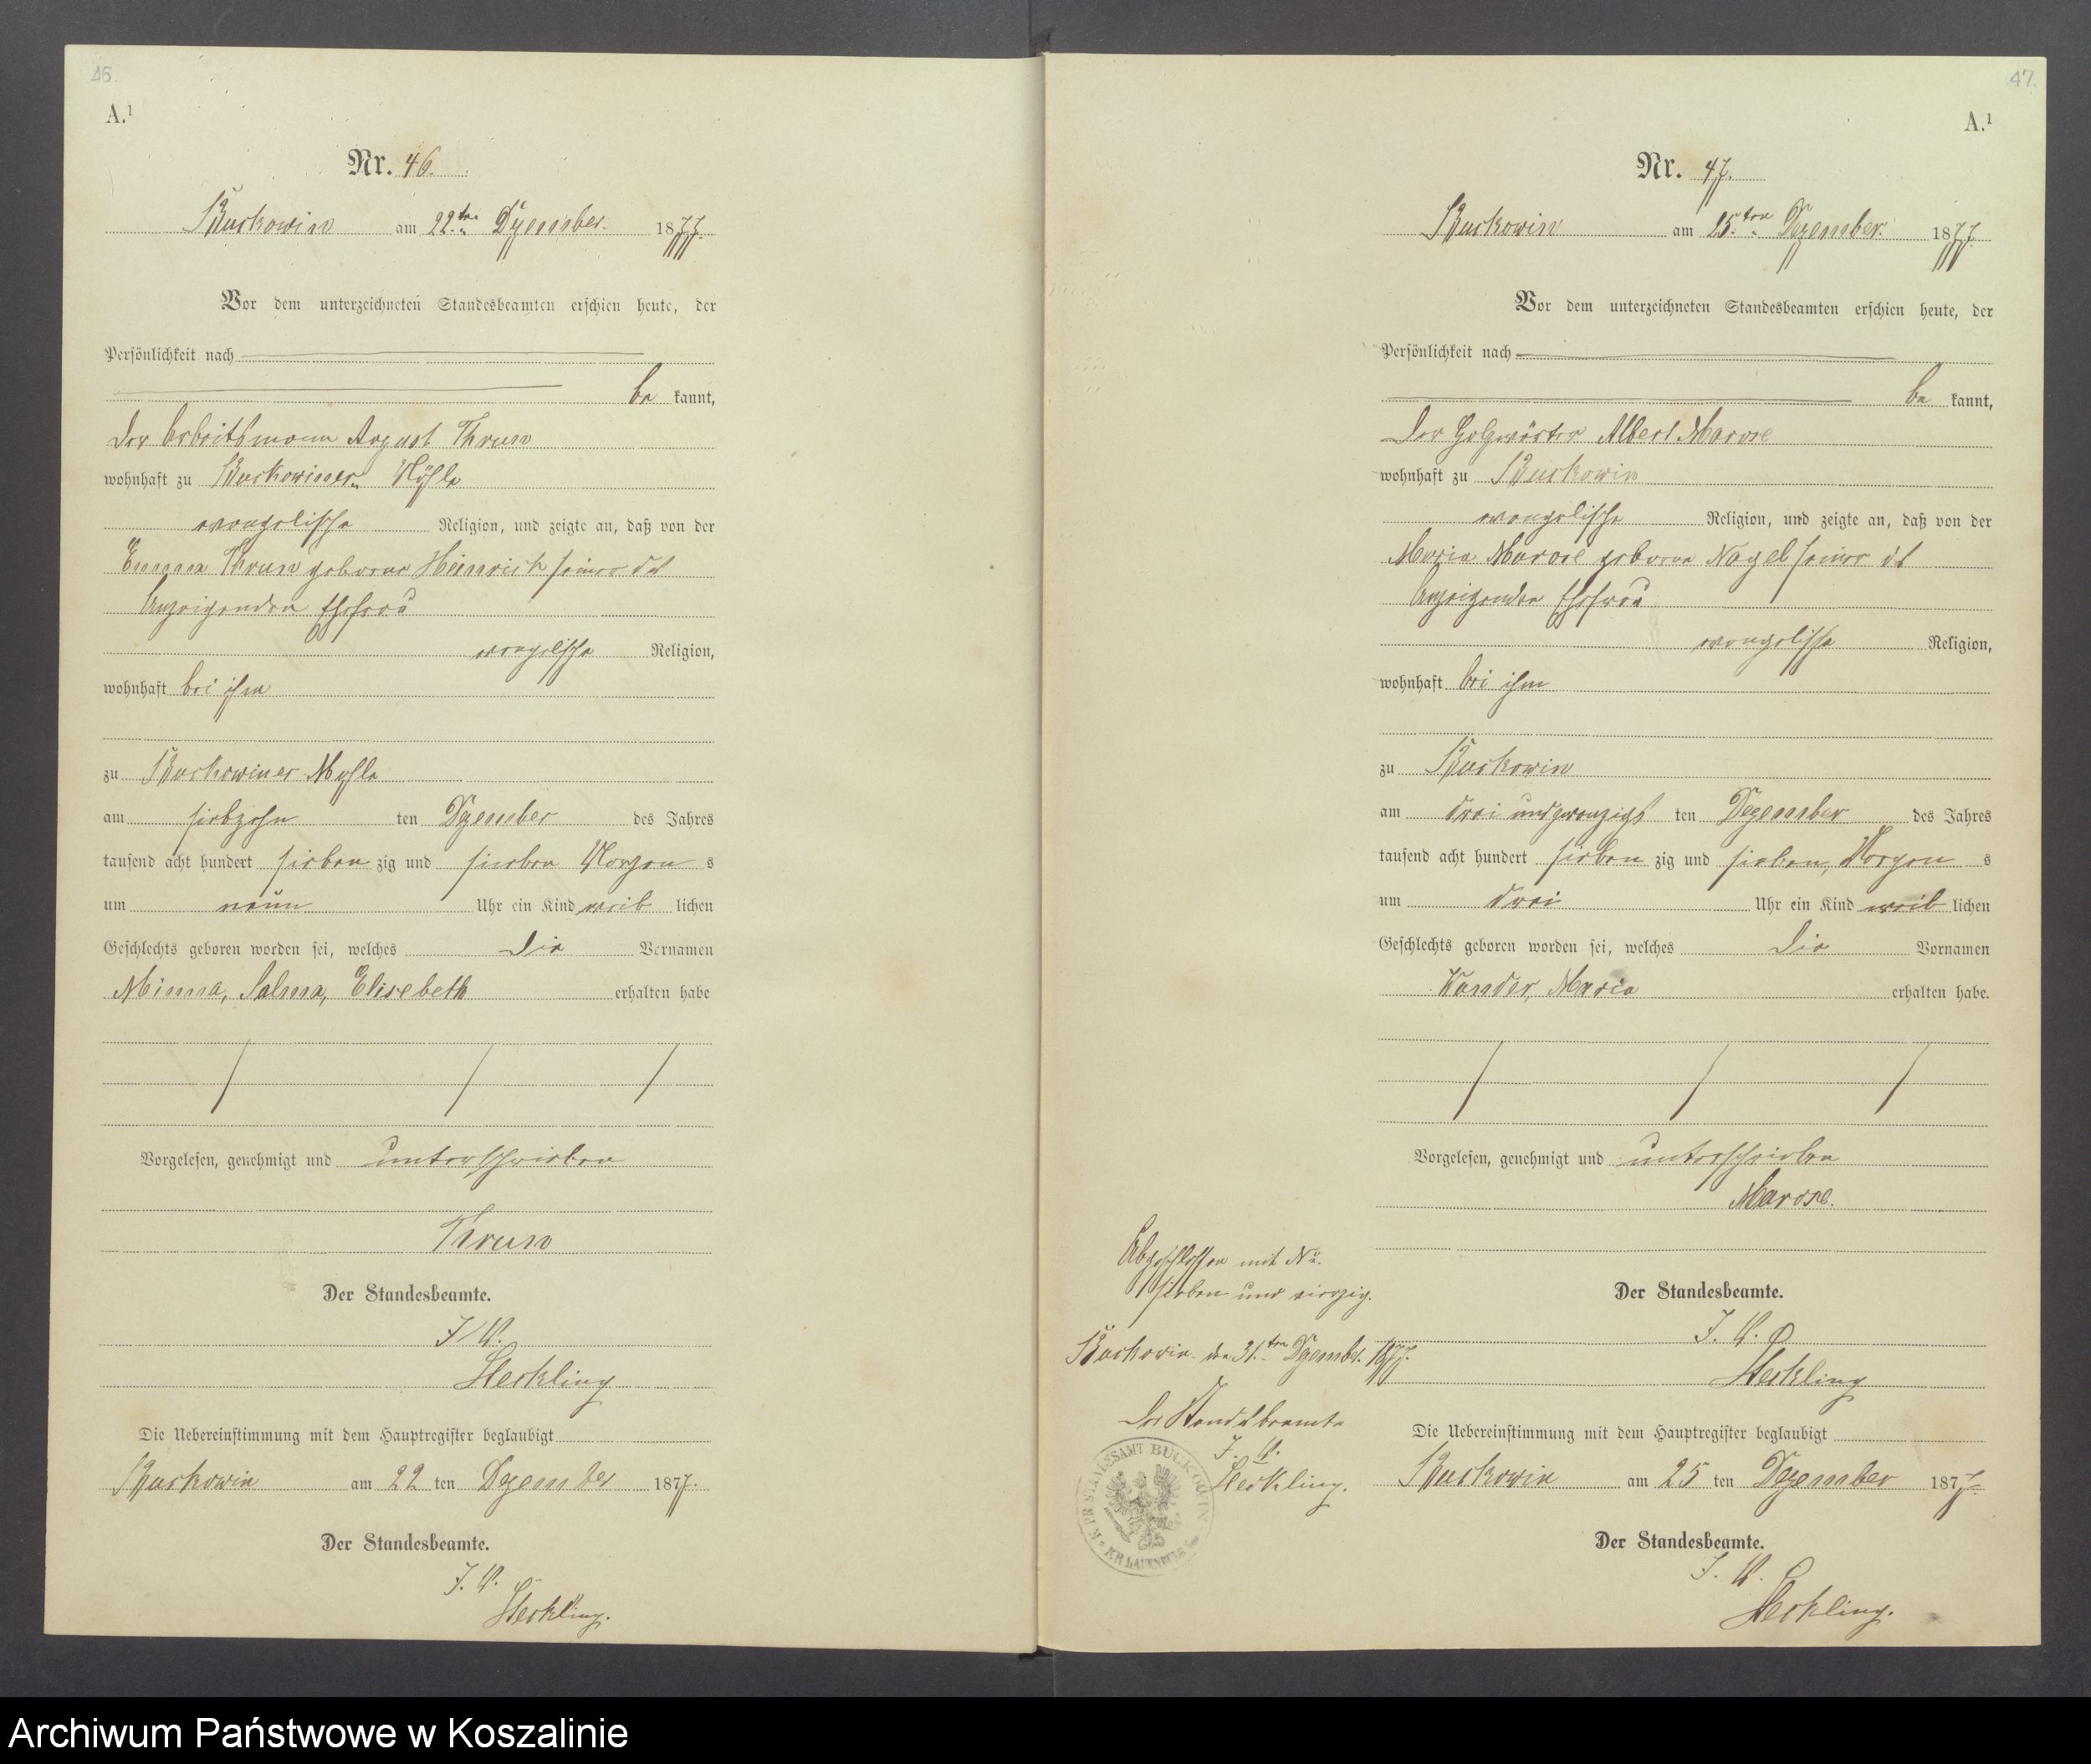 46.
A.¹
Nr. 46.
Buckowin am 22.ten Dezember. 1877.
Vor dem unterzeichneten Standesbeamten erschien heute, der
Persönlichkeit nach
be kannt,
der Arbeitsmann August Thrun
wohnhaft zu Buckowiner Mühle
evangelische Religion, und zeigte an, daß von der
Emma Thrun geborne Heinrich seiner des
Anzeigenden Ehefrau
evangelische Religion,
wohnhaft bei ihm
zu Buckowiner Mühle
am siebzehn ten Dezember des Jahres
tausend acht hundert sieben zig und sieben Morgen s
um neun Uhr ein Kind weib lichen
Geschlechts geboren worden sei, welches die Vornamen
Minna, Salma, Elisebeth erhalten habe
Vorgelesen, genehmigt und unterschrieben
Thrun
Der Standesbeamte.
I. V.
Sterkling
Die Uebereinstimmung mit dem Hauptregister beglaubigt
Buckowin am 22 ten Dezember 1877.
Der Standesbeamte.
I. V.
Sterkling.
47.
A.¹
Nr. 47.
Buckowin am 25.ten Dezember. 1877.
Vor dem unterzeichneten Standesbeamten erschien heute, der
Persönlichkeit nach
be kannt,
der Holzwärter Albert Marose
wohnhaft zu Buckowin
evangelische Religion, und zeigte an, daß von der
Maria Marose geborne Nagel seiner des
Anzeigenden Ehefrau
evangelische Religion,
wohnhaft bei ihm
zu Buckowin
am drei und zwanzigs ten Dezember des Jahres
tausend acht hundert sieben zig und sieben, Morgen s
um drei Uhr ein Kind weib lichen
Geschlechts geboren worden sei, welches die Vornamen
Maria erhalten habe.
Vorgelesen, genehmigt und unterschrieben
Marose.
Der Standesbeamte.
I. V.
Sterkling
Die Uebereinstimmung mit dem Hauptregister beglaubigt
Buckowin am 25 ten Dezember 1877.
Der Standesbeamte.
I. V.
Sterkling.
Abgeschlossen mit No.
sieben und vierzig.
Buckowin den 31.ten Dezember. 1877.
Der Standesbeamte
I. V.
Sterkling.
K. PR. STANDESAMT BUCKOWIN
KR. LAUENBURG
Archiwum Państwowe w Koszalinie